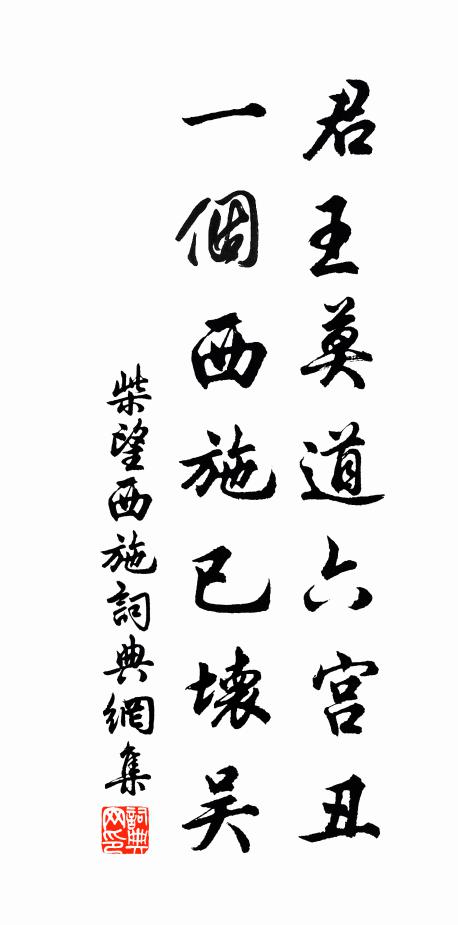 君王莫道六宫丑
一個西施已壞吴
柴望西施詞典網集
詞典网印